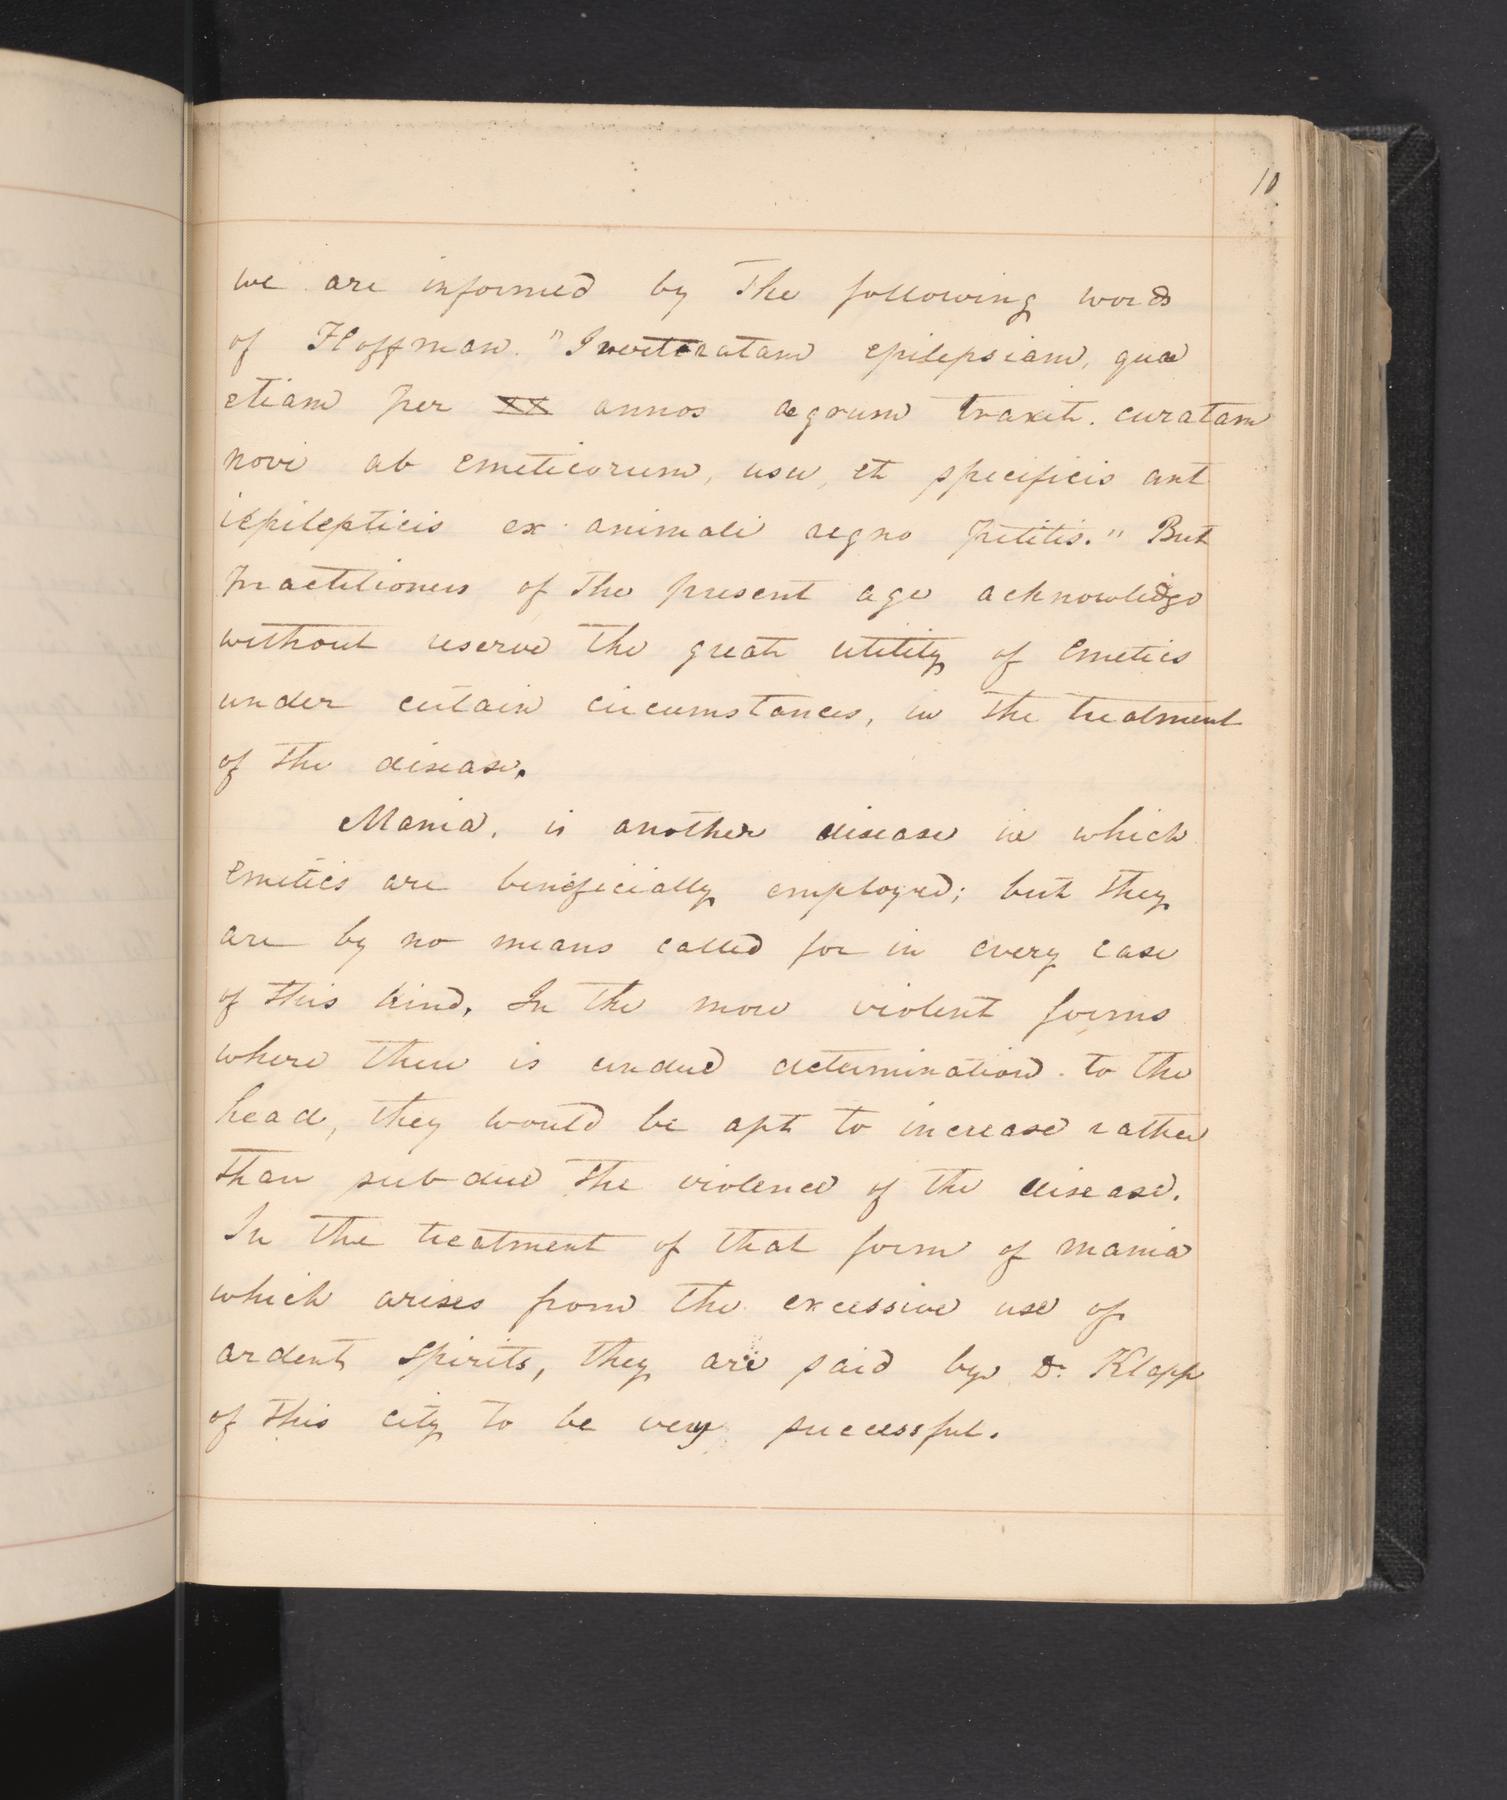 10
we are informed by The following words
of Hoffman. "Inveteratam epilepsiam, quæ
etiam per XX annos ægrum traxit. curatam
novi ab emeticorum, usu, et specificis ant
iepilepticis ex animali regno petitis." But
practitioners of the present age acknowledge
without reserve the great utility of Emetics
under certain circumstances, in the treatment
of the disease.
Mania, is another disease in which
Emetics are beneficially employed; but they
are by no means called for in every case
of this kind. In the more violent forms
where there is undue determination to the
head, they would be apt to increase rather
than subdue the violence of the disease.
In the treatment of that form of mania
which arises from the excessive use of
ardent spirits, they are said by Dr. Klapp
of this city to be very successful.